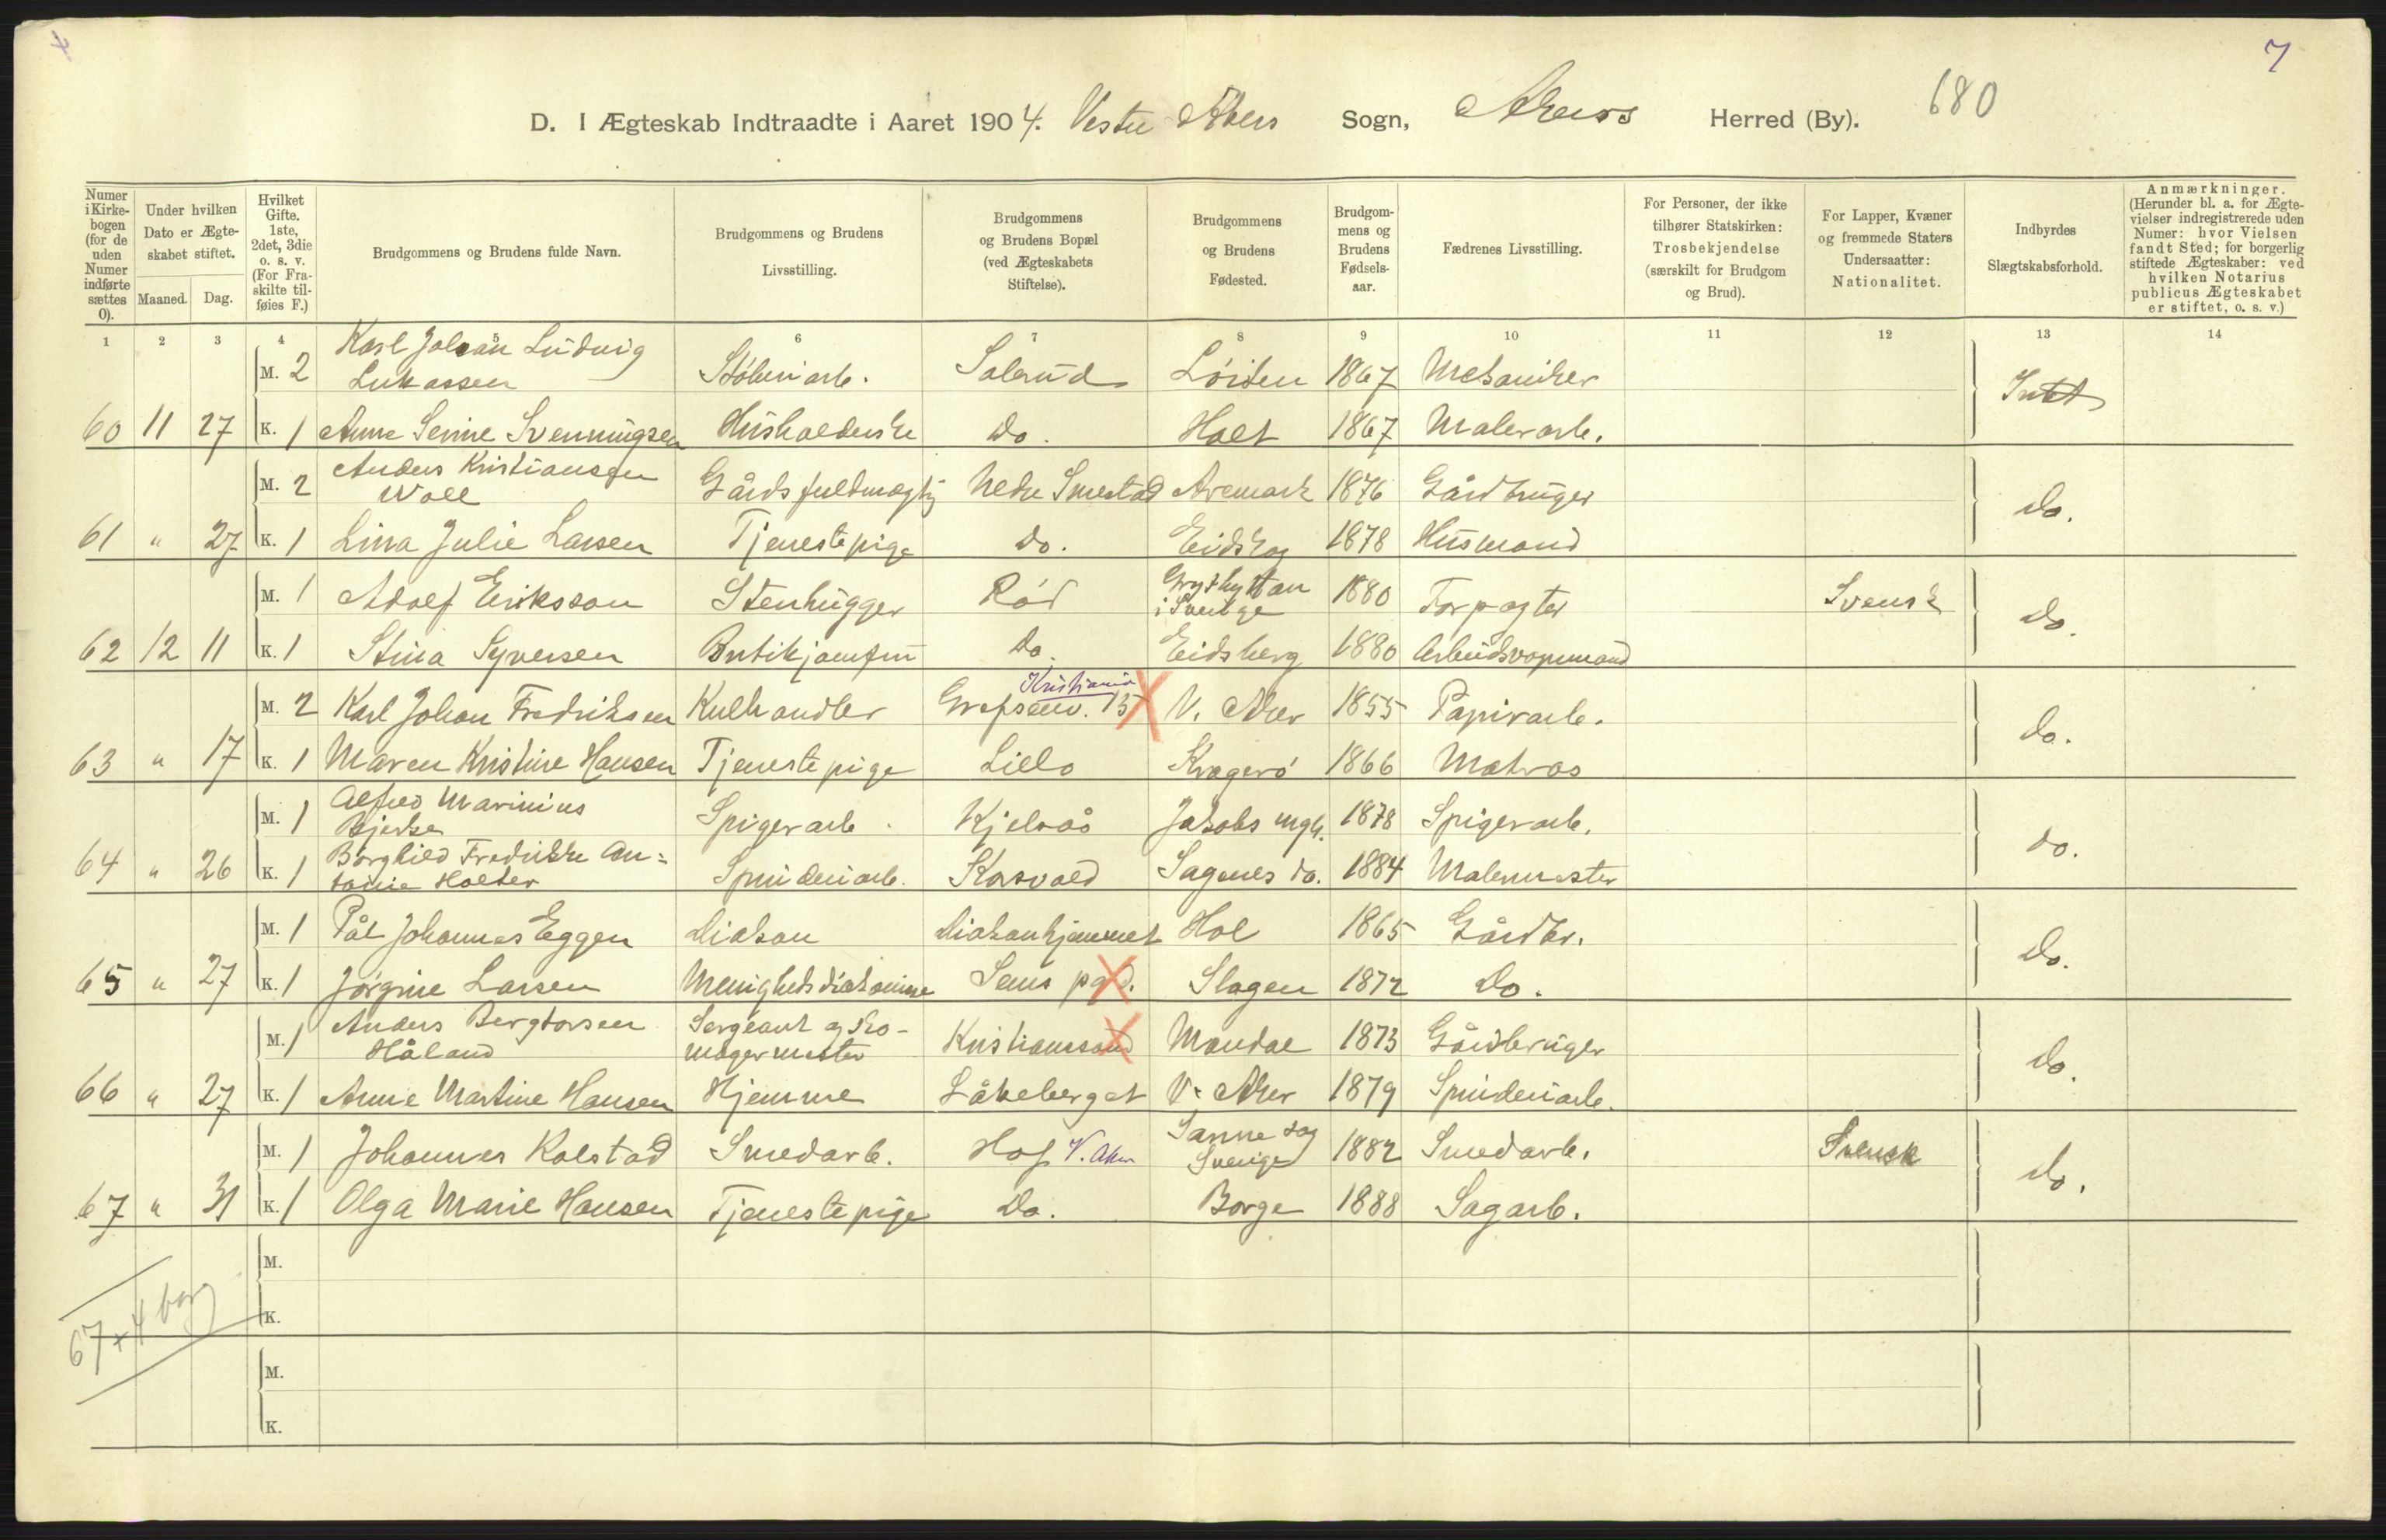 7
D. I Ægteskab Indtraadte i Aaret 1904. Vestre Akers Sogn, Akers Herred (By). 680
Numer i Kirkebogen (for de uden Numer indførte sættes 0).
Under hvilken Dato er Ægteskabet stiftet.
Maaned. Dag.
Hvilket Gifte. 1ste, 2det, 3die o. s. v. (For Fraskilte tilføies F.)
Brudgommens og Brudens fulde Navn.
Brudgommens og Brudens Livsstilling.
Brudgommens og Brudens Bopæl (ved Ægteskabets Stiftelse).
Brudgommens og Brudens Fødested.
Brudgommens og Brudens Fødselsaar.
Fædrenes Livsstilling.
For Personer, der ikke tilhører Statskirken: Trosbekjendelse (særskilt for Brudgom og Brud).
For Lapper, Kvæner og fremmede Staters Undersaatter: Nationalitet.
Indbyrdes Slægtskabsforhold.
Anmærkninger. (Herunder bl. a. for Ægtevielser indregistrerede uden Numer: hvor Vielsen fandt Sted; for borgerlig stiftede Ægteskaber: ved hvilken Notarius publicus Ægteskabet er stiftet, o. s. v.)
1 2 3 4 5 6 7 8 9 10 11 12 13 14
M. 2 Karl Johan Ludvig Lukassen Støberiarb. Solerud Løiten 1867 Mekaniker Intet
60 11 27 K. 1 Anne Serine Svenningsen Husholderske Do. Holt 1867 Malerarb.
M. 2 Anders Kristiansen Woll Gårdsfuldmægtig Nedre Smestad Aremark 1876 Gårdbruger Do.
61 " 27 K. 1 Lina Julie Larsen Tjenestepige Do. Eidskog 1878 Husmand
M. 1 Adolf Eriksson Stenhugger Rød Grythyttan i Sverige 1880 Torpagter Svensk Do.
62 12 11 K. 1 Stina Syversen Butikjomfru Do. Eidsberg 1880 Arbeidsformand
M. 2 Karl Johan Fredriksen Kulhandler Grefsenv. 15 Kristiania V. Aker 1855 Papirarb. Do.
63 " 17 K. 1 Maren Kristine Hansen Tjenestepige Lillo Kragerø 1866 Matros
M. 1 Alfred Marinius Bjerke Spigerarb. Kjelsås Jakobs mgh. 1878 Spigerarb. Do.
64 " 26 K. 1 Borghild Fredrikke Antonie Holter Spinderiarb. Korsvold Sagenes do. 1884 Malermester
M. 1 Pål Johannes Eggen Diakon Diakonhjemmet Hol 1865 Gårdbr. Do.
65 " 27 K. 1 Jørgine Larsen Menighedsdiakonisse Sems pgd. Slagen 1872 Do.
M. 1 Anders Bergtorsen Håland Sergeant og skomagermester Kristianssand Mandal 1873 Gårdbruger Do.
66 " 27 K. 1 Anne Martine Hansen Hjemme Låkeberget V. Aker 1879 Spinderiarb.
M. 1 Johannes Kolstad Smedarb. Hof V. Aker Sanne sog Sverige 1882 Smedarb. Svensk Do.
67 " 31 K. 1 Olga Marie Hansen Tjenestepige Do. Borge 1888 Sagarb.
M.
K.
67 + 4 borg
M.
K.